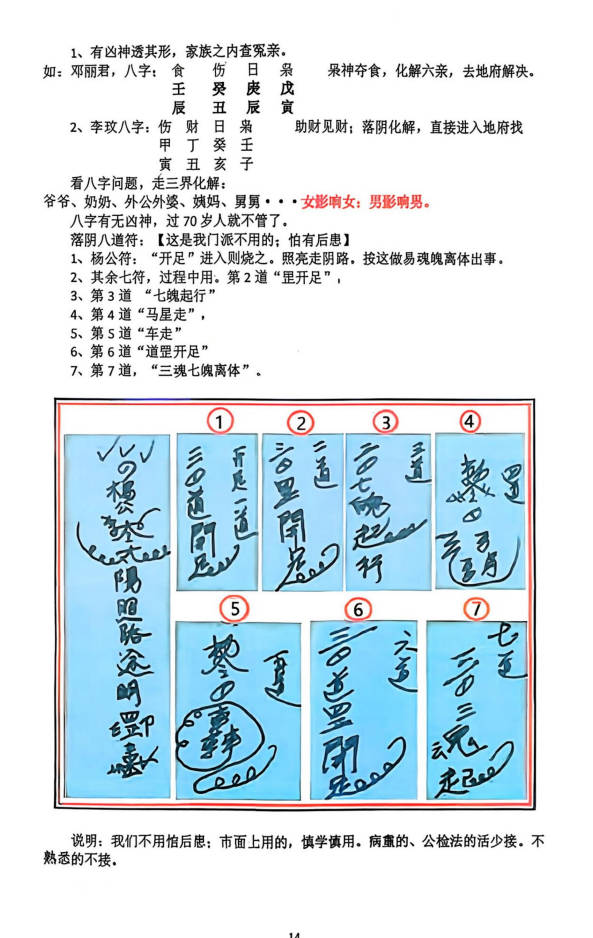 1、有凶神透其形，家族之内查冤亲。
如：邓丽君，八字： 食 伤 日 枭 枭神夺食，化解六亲，去地府解决。
壬 癸 庚 戊
辰 丑 辰 寅
2、李玟八字：伤 财 日 枭 助财见财；落阴化解，直接进入地府找
甲 丁 癸 壬
寅 丑 亥 子
看八字问题，走三界化解：
爷爷、奶奶、外公外婆、姨妈、舅舅···女影响女；男影响男。
八字有无凶神，过 70 岁人就不管了。
落阴八道符：【这是我们门派不用的；怕有后患】
1、杨公符：“开足”进入则烧之。照亮走阴路。按这做易魂魄离体出事。
2、其余七符，过程中用。第 2 道“罡开足”，
3、第 3 道 “七魄起行”
4、第 4 道“马星走”，
5、第 5 道“车走”
6、第 6 道“道罡开足”
7、第 7 道，“三魂七魄离体”。
① ② ③ ④
杨公
太陽照路途明罡
开足一道
道開
二道
罡開
三道
七魄起行
四道
⑤ ⑥ ⑦
五道
六道
道罡開
七道
三魂起
说明：我们不用怕后患；市面上用的，慎学慎用。病重的、公检法的活少接。不
熟悉的不接。
14